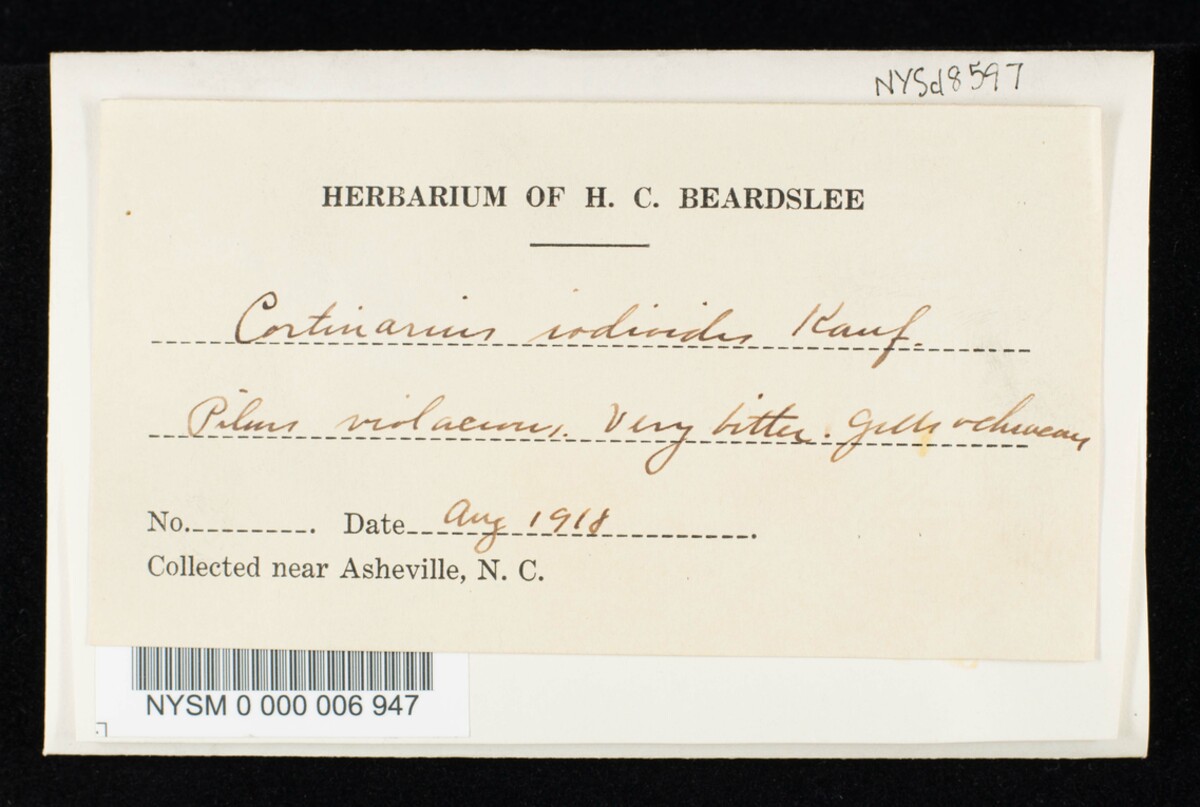 NYSd8597
HERBARIUM OF H. C. BEARDSLEE
Cortinarius iodioides Kauf.
Pileus violaceous. Very bitter. Gills ochraceous
No. . Date Aug 1918 .
Collected near Asheville, N. C.
NYSM 0 000 006 947